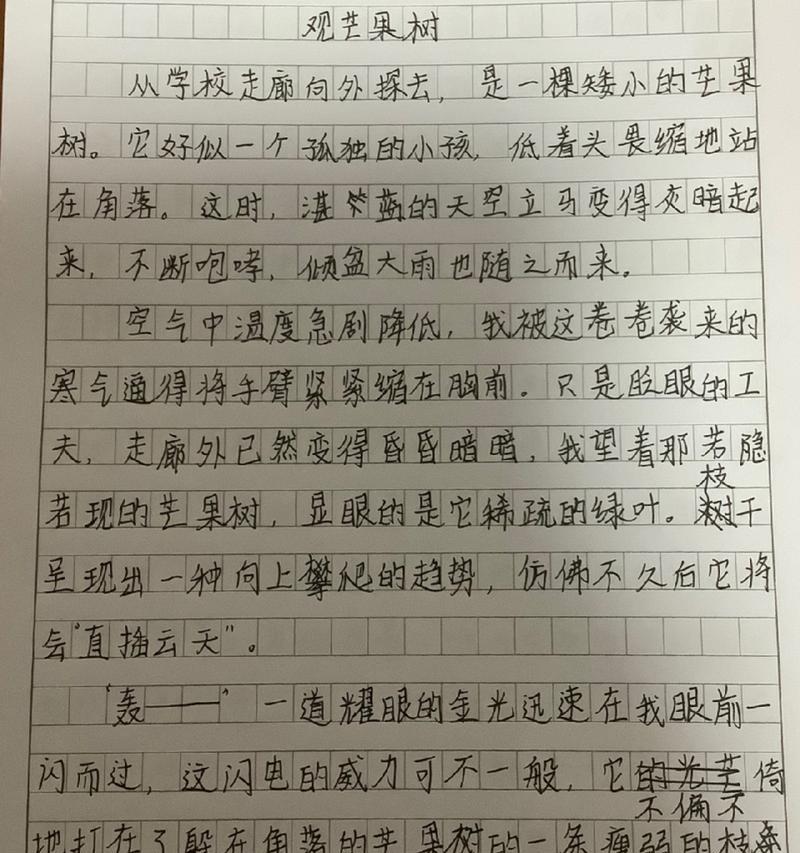 观芒果树
从学校走廊向外探去，是一棵矮小的芒果
树。它好似一个孤独的小孩，低着头畏缩地站
在角落。这时，湛蓝的天空立马变得灰暗起
来，不断咆哮，倾盆大雨也随之而来。
空气中温度急剧降低，我被这卷卷袭来的
寒气逼得将手臂紧紧缩在胸前。只是眨眼的工
夫，走廊外已然变得昏昏暗暗，我望着那若隐
若现的芒果树，显眼的是它稀疏的绿叶。枝干
呈现出一种向上攀爬的趋势，仿佛不久后它将
会“直插云天”。
“轰——”一道耀眼的金光迅速在我眼前一
闪而过，这闪电的威力可不一般，它不偏不倚
地打在了躲在角落的芒果树的一条瘦弱的枝